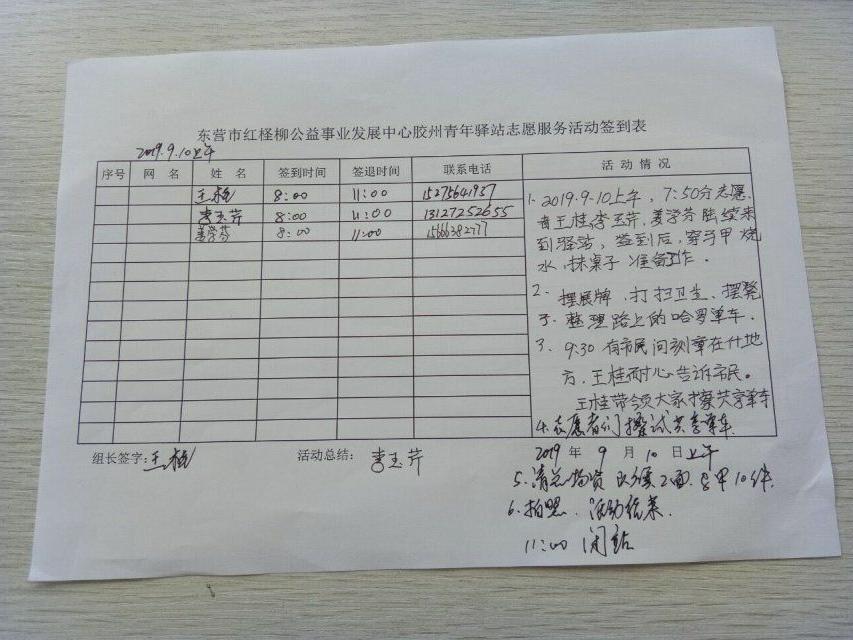 东营市红柽柳公益事业发展中心胶州青年驿站志愿服务活动签到表
2019.9.10上午
序号 网 名 姓 名 签到时间 签退时间 联系电话 活 动 情 况
王桂 8:00 11:00 15275641957
李玉芹 8:00 11:00 13127252655
姜学芬 8:00 11:00 15666382777
1. 2019.9.10上午，7:50分志愿
者王桂，李玉芹，姜学芬陆续来
到驿站，签到后，穿马甲烧
水，抹桌子 准备工作。
2. 摆展牌、打扫卫生、摆凳
子、整理路上的哈罗单车.
3. 9:30 有市民问刻章在什地
方，王桂耐心告诉市民。
王桂带领大家擦共享单车
4.志愿者们擦试共享单车.
组长签字:王桂 活动总结: 李玉芹 2019 年 9 月 10 日上午
5.清点物资 队旗2面.马甲10件.
6.拍照.活动结束.
11:00 闭站